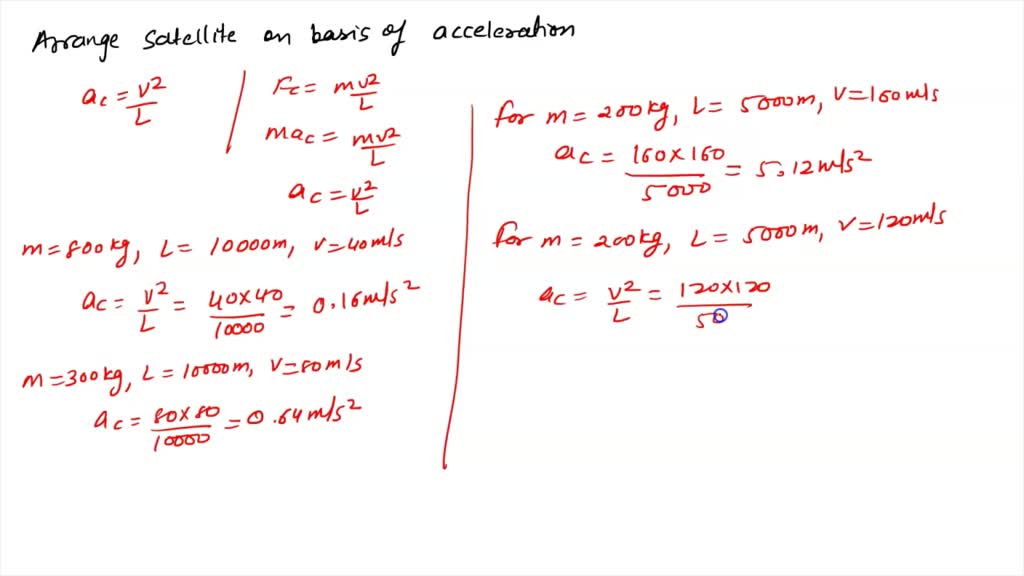 Arrange satellite on basis of acceleration
ac = v²/L
Fc = mv²/L
mac = mv²/L
ac = v²/L
m=800kg, L= 10000m, v=40m/s
ac = v²/L = 40x40/10000 = 0.16m/s²
m=300kg, L=10000m, v=80m/s
ac = 80x80/10000 = 0.64m/s²
for m = 200kg, L= 5000m, v=160m/s
ac = 160x160/5000 = 5.12m/s²
for m = 200kg, L= 5000m, v=120m/s
ac = v²/L = 120x120/50